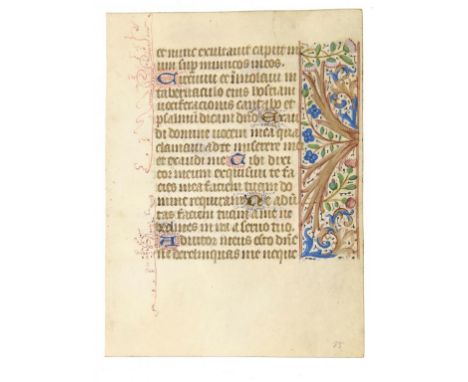 et nunc exaltavit caput me
um sup inimicos meos
Circuivi et imolavi in
tabernaculo eius hostiam
vociferacionis cantabo et
psalmū dicam dño Exau
di domine vocem meā qua
clamavi ad te miserere mei
et exaudi me Tibi dixit
cor meum exquisivit te fa
cies mea faciem tuam do
mine requiram Ne aver
tas faciem tuam a me ne
declines in ira a servo tuo
Adiutor meus esto dñe
ne derelinquas me neque